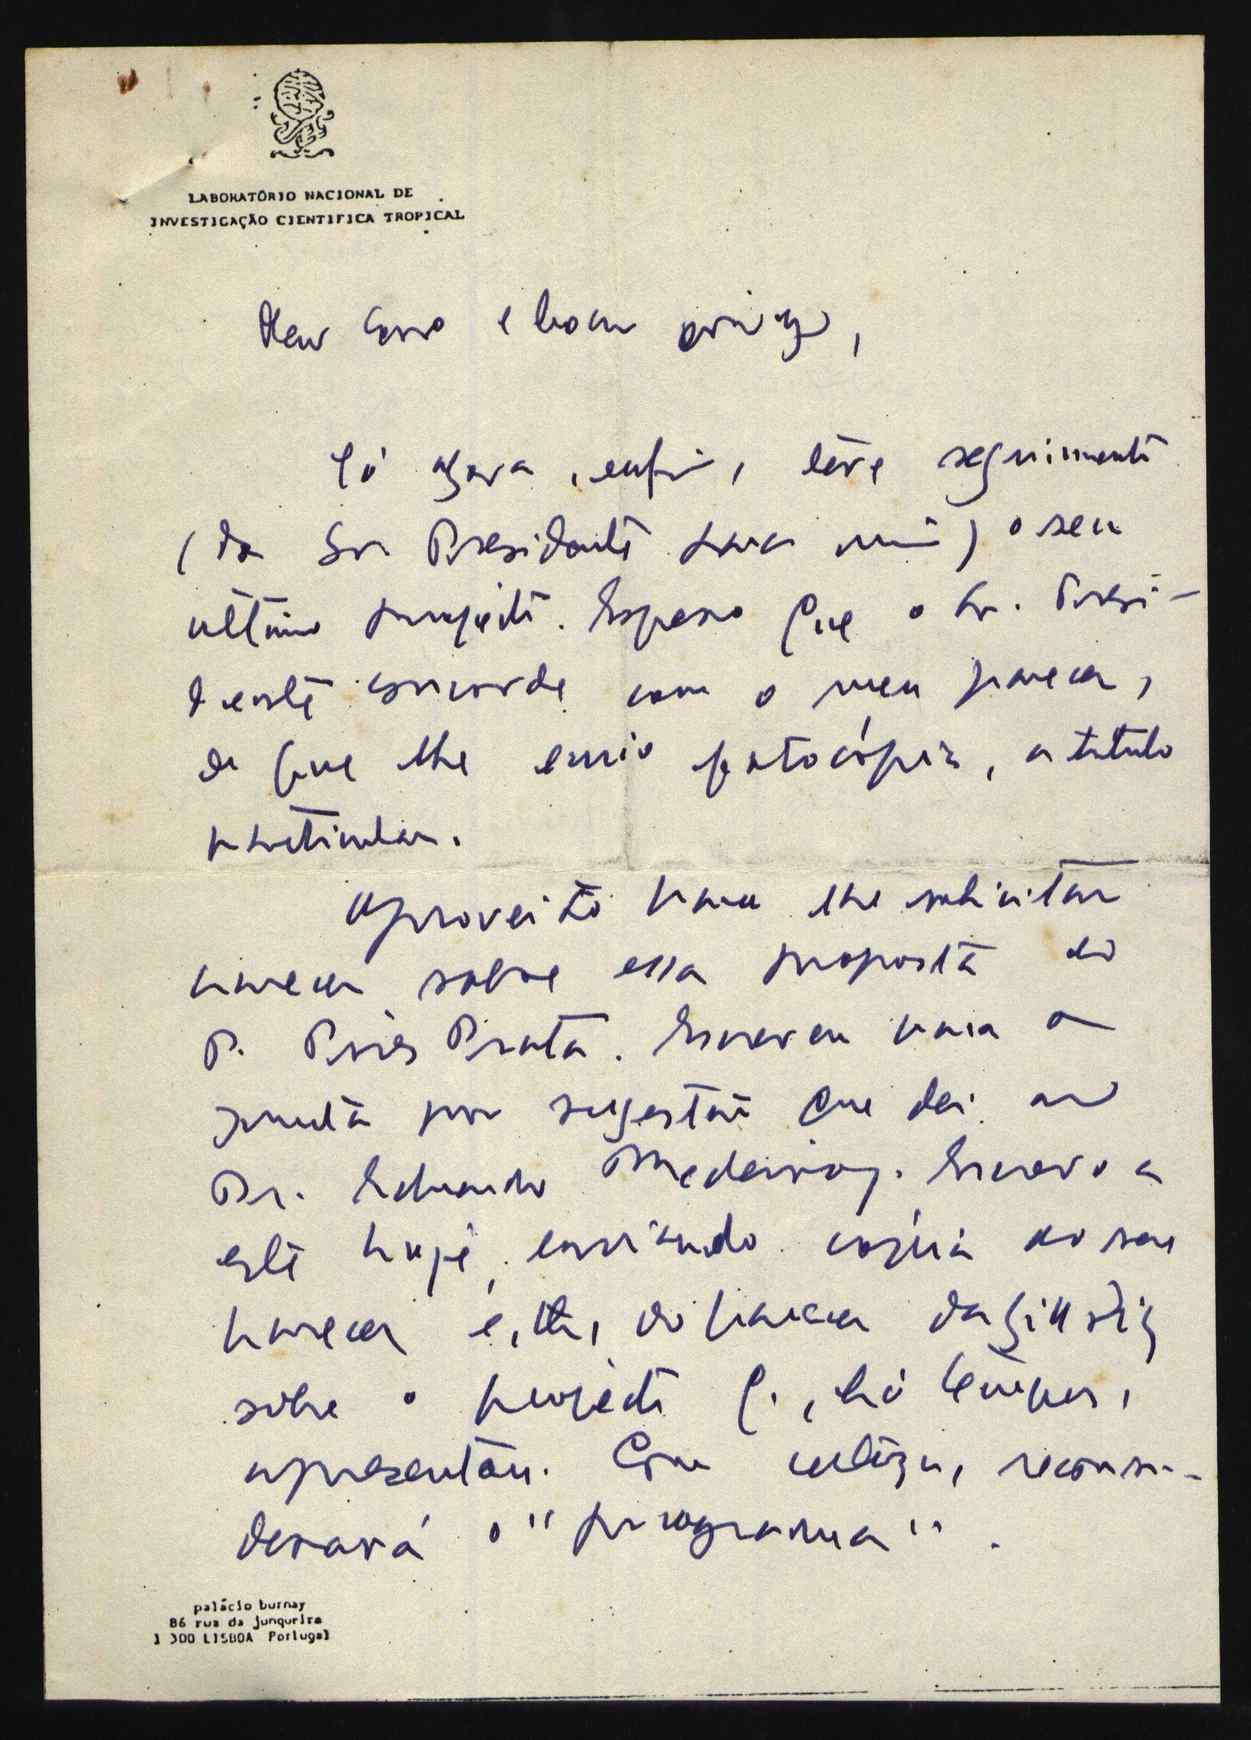 LABORATÓRIO NACIONAL DE
INVESTIGAÇÃO CIENTIFICA TROPICAL
Meu Caro e bom amigo,
Só agora, enfim, teve seguimento
(do Sr. Presidente para mim) o seu
ultimo projecto. Espero que o Sr. Presi-
dente concorde com o meu parecer,
de que lhe envio fotocópia, a titulo
particular.
Aproveito para lhe solicitar
parecer sobre essa proposta do
P. Pires Prata. Escreveu para a
Junta por sugestão que dei ao
Dr. Eduardo Medeiros. Escrevo a
este hoje, enviando cópia do seu
parecer e, do parecer da
sobre o projecto q., há tempos,
apresentou. Com certeza, reconsi-
derará o "programa".
palácio burnay
86 rua da junqueira
1 300 LISBOA Portugal